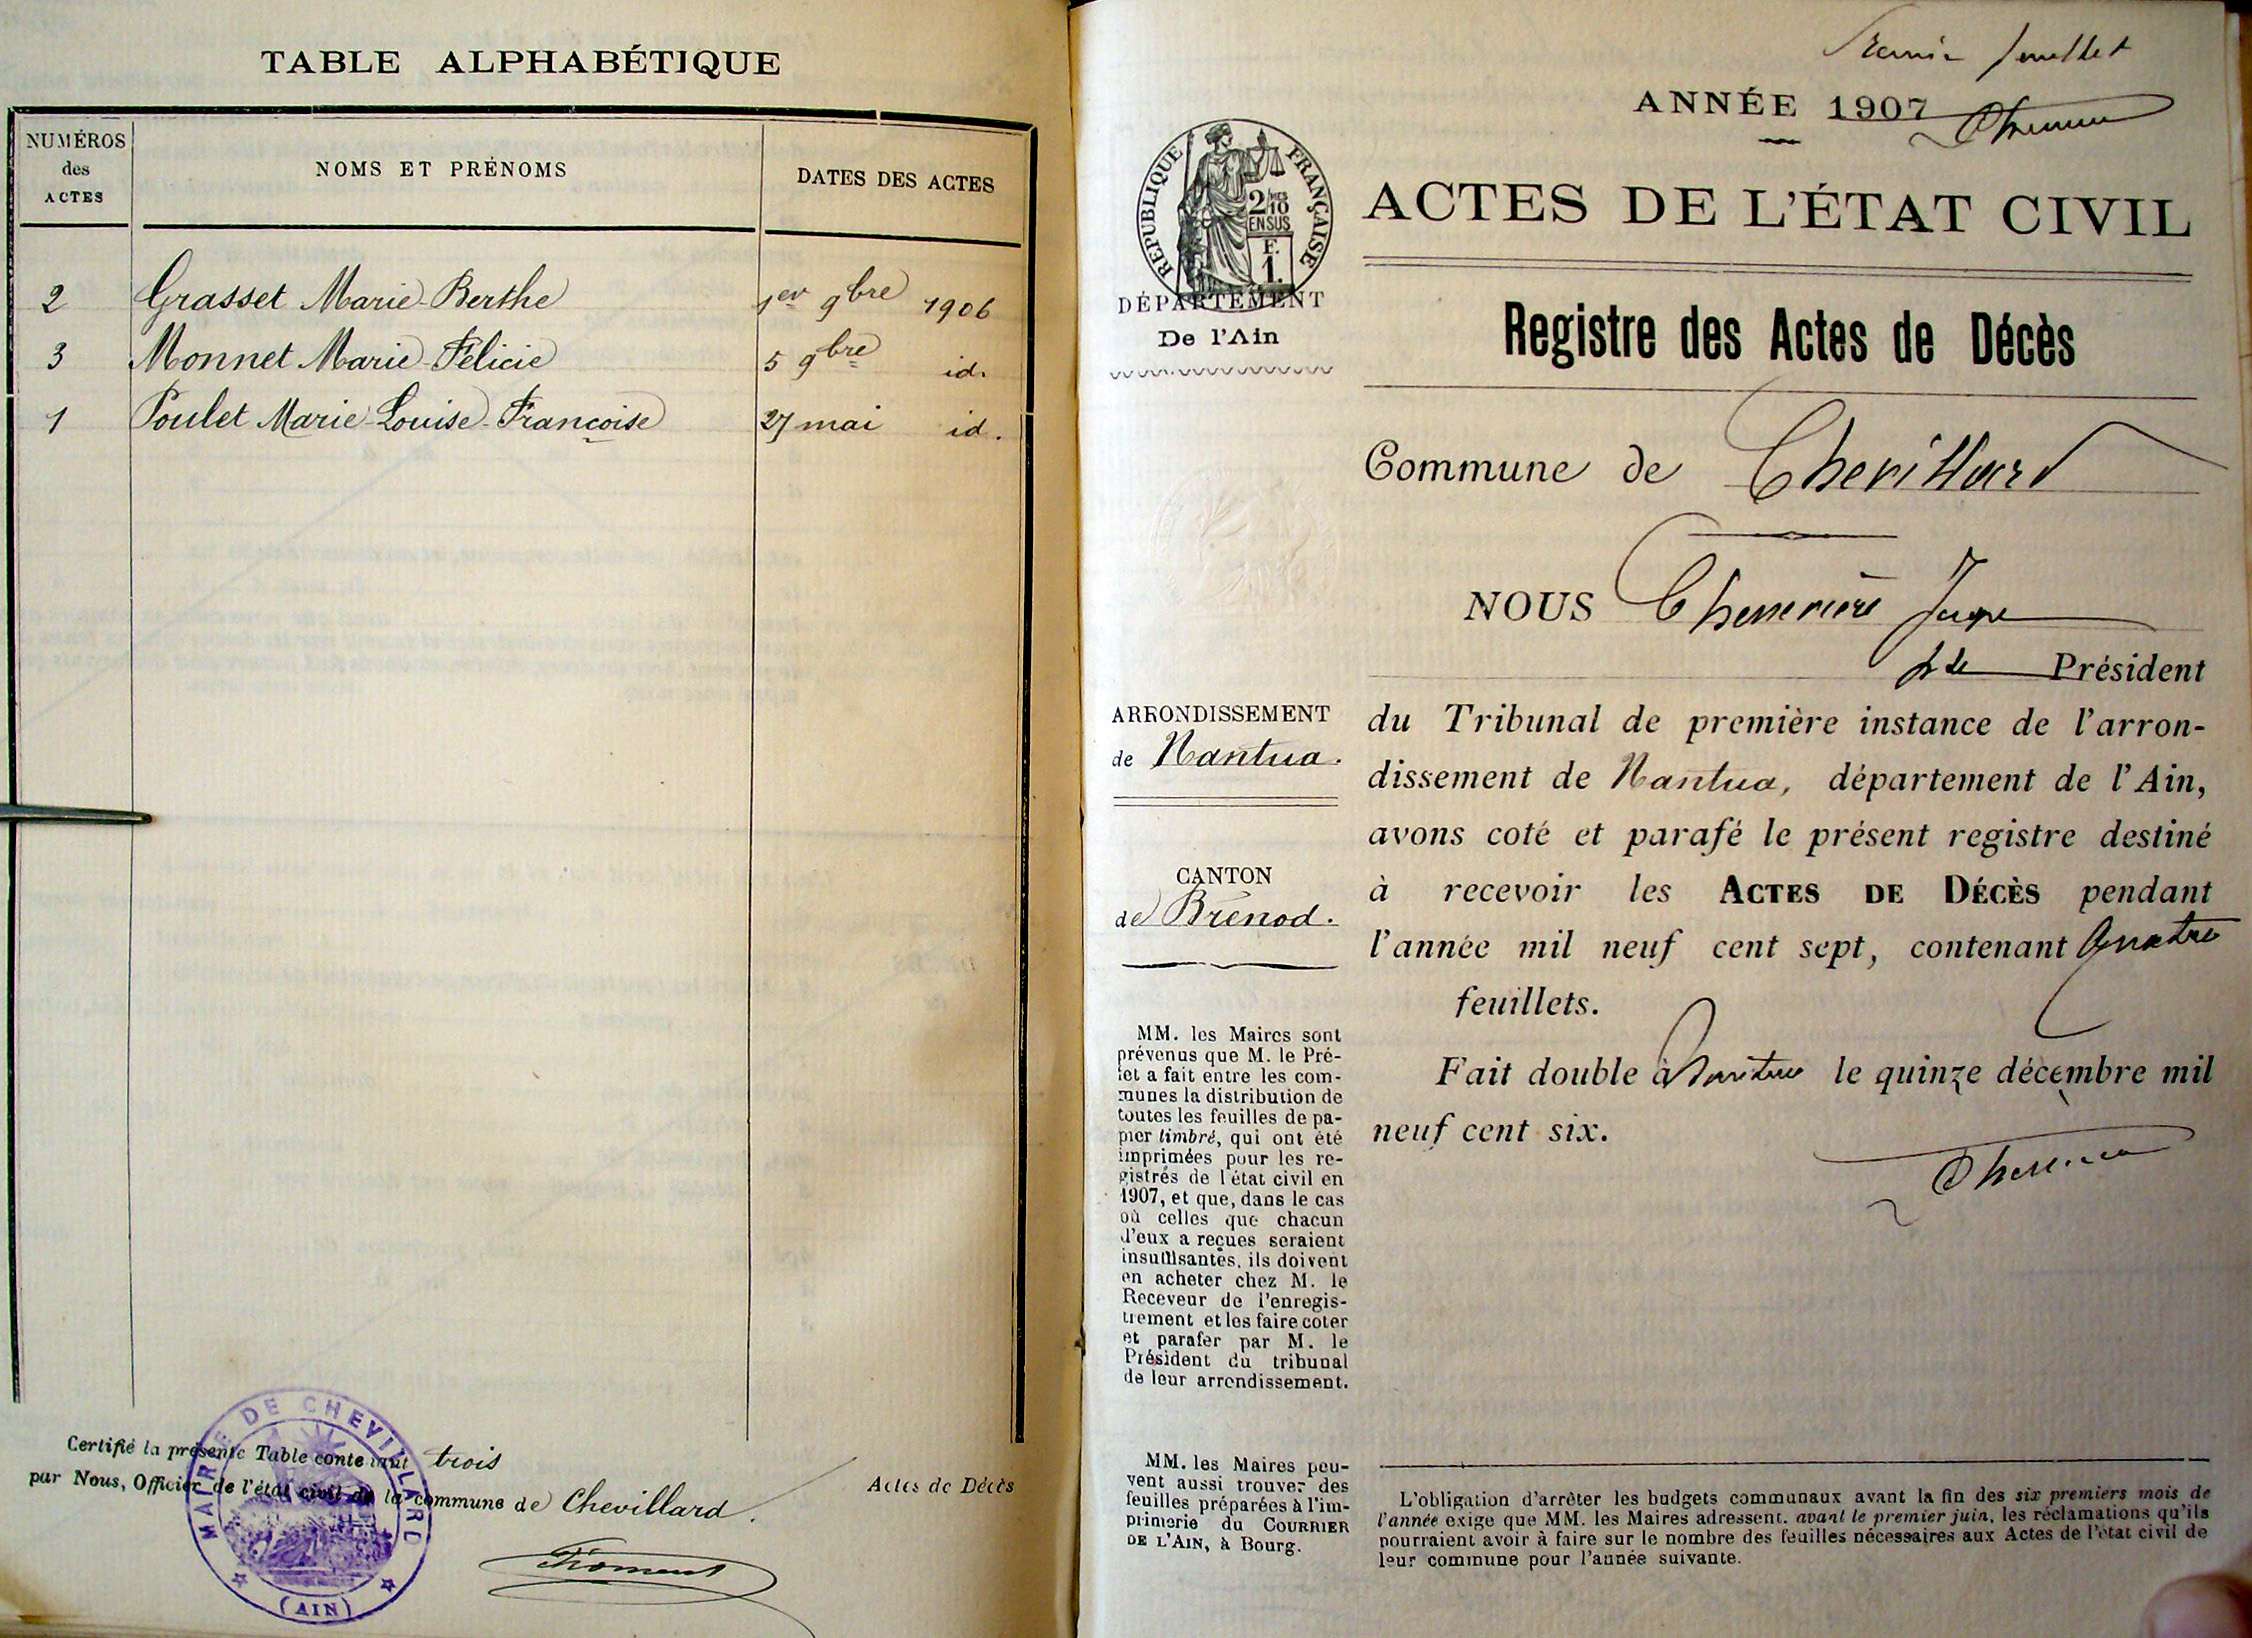 TABLE ALPHABÉTIQUE
NUMÉROS
des
ACTES
NOMS ET PRÉNOMS
DATES DES ACTES
2 Grasset Marie-Berthe 1er 9bre 1906
3 Monnet Marie-Félicie 5 9bre id.
1 Poulet Marie-Louise-Françoise 27 mai id.
Certifié la présente Table contenant trois Actes de Décès
par Nous, Officier de l'état civil de la commune de Chevillard.
MAIRIE DE CHEVILLARD
(AIN)
Premier feuillet
ANNÉE 1907
RÉPUBLIQUE FRANÇAISE
2/10
EN SUS
F.
1.
DÉPARTEMENT
De l'Ain
ACTES DE L'ÉTAT CIVIL
Registre des Actes de Décès
Commune de Chevillard
NOUS Juge
Président
du Tribunal de première instance de l'arron-
dissement de Nantua, département de l'Ain,
avons coté et parafé le présent registre destiné
à recevoir les ACTES DE DÉCÈS pendant
l'année mil neuf cent sept, contenant Quatre
feuillets.
Fait double à Nantua le quinze décembre mil
neuf cent six.
ARRONDISSEMENT
de Nantua.
CANTON
de Brénod.
MM. les Maires sont
prévenus que M. le Pré-
fet a fait entre les com-
munes la distribution de
toutes les feuilles de pa-
pier timbré, qui ont été
imprimées pour les re-
gistrés de l'état civil en
1907, et que, dans le cas
où celles que chacun
d'eux a reçues seraient
insuffisantes, ils doivent
en acheter chez M. le
Receveur de l'enregis-
trement et les faire coter
et parafer par M. le
Président du tribunal
de leur arrondissement.
MM. les Maires peu-
vent aussi trouver des
feuilles préparées à l'im-
primerie du COURRIER
DE L'AIN, à Bourg.
L'obligation d'arrêter les budgets communaux avant la fin des six premiers mois de
l'année exige que MM. les Maires adressent, avant le premier juin, les réclamations qu'ils
pourraient avoir à faire sur le nombre des feuilles nécessaires aux Actes de l'état civil de
leur commune pour l'année suivante.